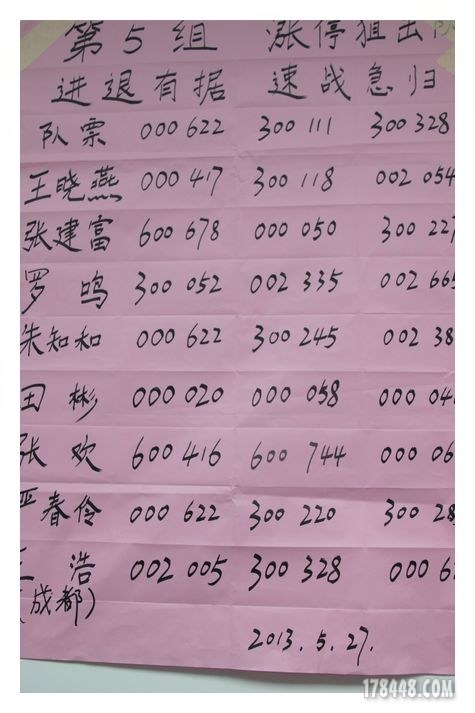 第5组 涨停狙击队
进退有据 速战急归
队票 000 622 300 111 300 328
王晓燕 000 417 300 118 002 054
张建富 600 678 000 050 300 227
罗鸣 300 052 002 335 002 665
朱知和 000 622 300 245 002 38
田彬 000 020 000 058 000 04
张欢 600 416 600 744 000 06
严春伶 000 622 300 220 300 28
王浩 002 005 300 328 000 6
(成都)
2013.5.27.
178448.COM